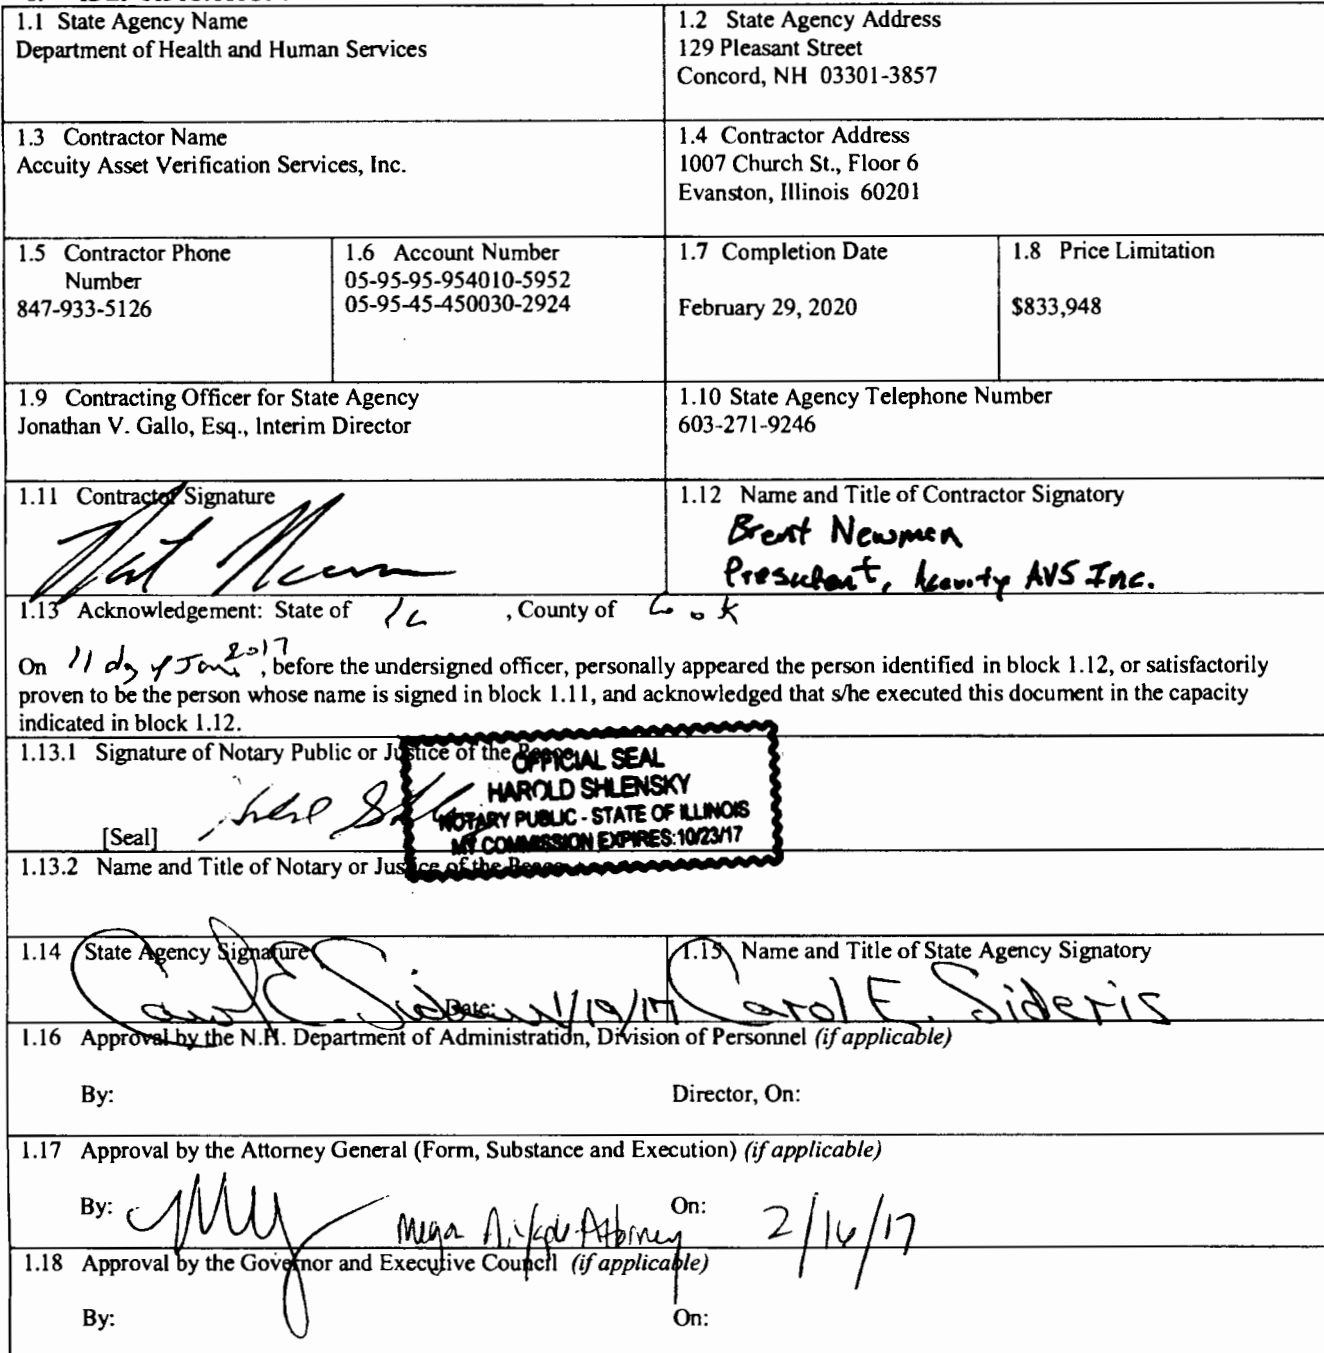 1.1 State Agency Name
Department of Health and Human Services
1.2 State Agency Address
129 Pleasant Street
Concord, NH 03301-3857
1.3 Contractor Name
Accuity Asset Verification Services, Inc.
1.4 Contractor Address
1007 Church St., Floor 6
Evanston, Illinois 60201
1.5 Contractor Phone
Number
847-933-5126
1.6 Account Number
05-95-95-954010-5952
05-95-45-450030-2924
1.7 Completion Date
February 29, 2020
1.8 Price Limitation
$833,948
1.9 Contracting Officer for State Agency
Jonathan V. Gallo, Esq., Interim Director
1.10 State Agency Telephone Number
603-271-9246
1.11 Contractor Signature
1.12 Name and Title of Contractor Signatory
Brent Newman
President, Accuity AVS Inc.
1.13 Acknowledgement: State of IL , County of Cook
On 11 day of Jan 2017, before the undersigned officer, personally appeared the person identified in block 1.12, or satisfactorily
proven to be the person whose name is signed in block 1.11, and acknowledged that s/he executed this document in the capacity
indicated in block 1.12.
1.13.1 Signature of Notary Public or Justice of the Peace
OFFICIAL SEAL
HAROLD SHLENSKY
NOTARY PUBLIC - STATE OF ILLINOIS
MY COMMISSION EXPIRES:10/23/17
[Seal]
1.13.2 Name and Title of Notary or Justice of the Peace
1.14 State Agency Signature
Carol E. Sideris Date: 1/19/17
1.15 Name and Title of State Agency Signatory
Carol E. Sideris
1.16 Approval by the N.H. Department of Administration, Division of Personnel (if applicable)
By: Director, On:
1.17 Approval by the Attorney General (Form, Substance and Execution) (if applicable)
By: Attorney On: 2/16/17
1.18 Approval by the Governor and Executive Council (if applicable)
By: On: